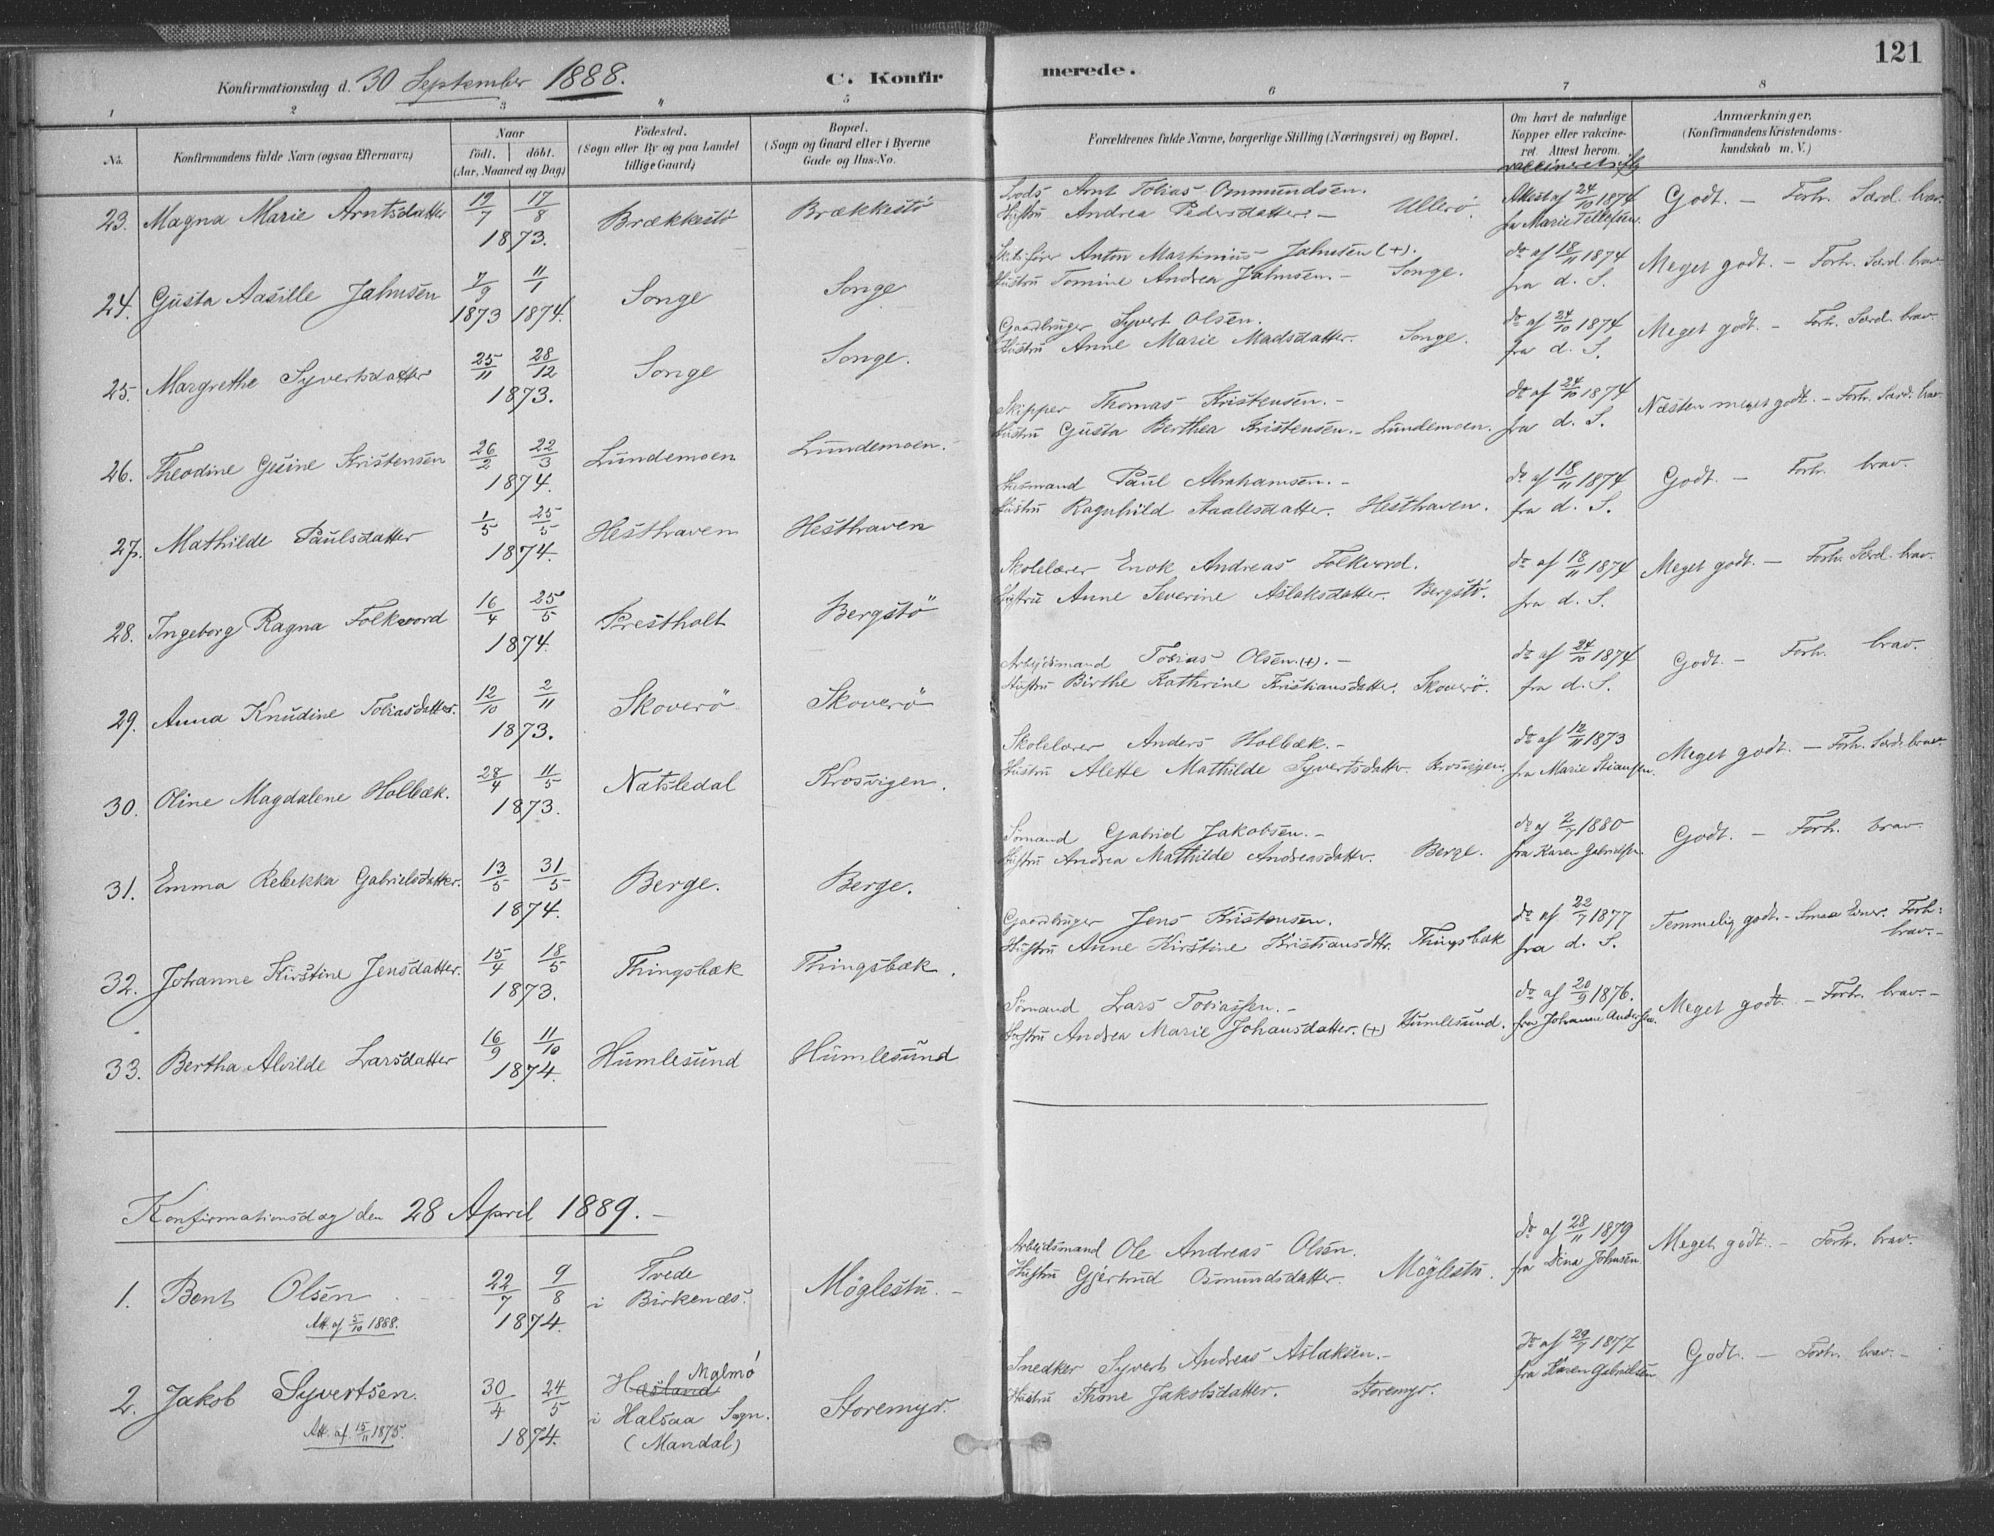 121
Konfirmationsdag d. 30 September 1888. C. Konfirmerede.
1 2 3 4 5 6 7 8
No. Konfirmandens fulde Navn (ogsaa Efternavn) Naar födt. döbt. (Aar, Maaned og Dag) Födested. (Sogn eller By og paa Landet tillige Gaard) Bopæl. (Sogn og Gaard eller i Byerne Gade og Hus-No. Forældrenes fulde Navne, borgerlige Stilling (Næringsvei) og Bopæl. Om havt de naturlige Kopper eller vakcineret. Attest herom. Anmærkninger. (Konfirmandens Kristendomskundskab m. V.)
23. Magna Marie Arntsdatter 19/7 17/8 1873. Brækkestö Brækkestö Lods Arnt Tobias Ommundsen. Hustru Andrea Pedersdatter. – Ullerö. Attest af 24/10 1874 fra Marie Tellefsen. Godt. – Forh. Særd. brav.
24. Gusta Aasille Jahnsen 7/9 1873 11/1 1874. Songe Songe Skibsfører Anton Martinius Jahnsen (+). Hustru Tomine Andrea Jahnsen. – Songe. do af 18/11 1874 fra d. S. Meget godt. – Forh. Særd. brav
25. Margrethe Syvertsdatter 25/11 28/12 1873. Songe Songe. Gaardbruger Syvert Olsen. Hustru Anne Marie Madsdatter. Songe. do af 24/10 1874 fra d. S. Meget godt. – Forh. Særd. brav.
26. Theodine Gesine Kristensen 26/2 22/3 1874. Lundemoen Lundemoen. Skipper Thomas Kristensen. – Hustru Gusta Berthea Kristensen. – Lundemoen. do af 24/10 1874 fra d. S. Næsten meget godt. – Forh. Særd. brav
27. Mathilde Paulsdatter 1/5 25/5 1874. Hesthaven Hesthaven Husmand Paul Abrahamsen. – Hustru Ragnhild Aaalesdatter. Hesthaven. do af 18/11 1874 fra d. S. Godt. – Forh. brav.
28. Ingeborg Ragna Folkvord 16/4 25/5 1874. Prestholt Bergstö Skolelærer Enok Andreas Folkvord. Hustru Anne Severine Aslaksdatter. Bergstö. do af 18/11 1874 fra d. S. Meget godt. – Forh. Særd. brav.
29. Anna Knudine Tobiasdatter. 12/10 2/11 1873. Skoverö Skoverö Arbeidsmand Tobias Olsen. (+). – Hustru Birthe Kathrine Kristiansdatter. Skoverö. do af 24/10 1874 fra d. S. Godt. – Forh. brav.
30. Oline Magdalene Holbæk. 28/4 11/5 1873. Natsledal Krosvigen. Skolelærer Anders Holbæk. – Hustru Alette Mathilde Syvertsdatter. Krosvigen. do af 12/11 1873 fra Marie Stiansen. Meget godt. – Forh. Særd. brav.
31. Emma Rebekka Gabrielsdatter. 13/5 31/5 1874. Berge. Berge. Sømand Gabriel Jakobsen. – Hustru Andrea Mathilde Andreasdatter. Berge. do af 2/7 1880 fra Karen Gabrielsen Godt. – Forh. brav.
32. Johanne Kirstine Jensdatter. 15/4 18/5 1873. Thingsbæk Thingsbæk. Gaardbruger Jens Kristensen. Hustru Anne Kirstine Kristiansdtr. Thingsbæk do af 22/7 1877 fra d. S. Temmelig godt. – Smaa Evner. Forh. brav. –
33. Bertha Alvilde Larsdatter 16/9 11/10 1874. Humlesund Humlesund Sømand Lars Tobiassen. – Hustru Andrea Marie Johansdatter. (+) Humlesund. do af 20/9 1876. fra Johanne Andersen. Meget godt. – Forh. brav. –
Konfirmationsdag den 28 April 1889. –
1. Bent Olsen Att. af 5/10 1888. 22/7 9/8 1874. Tvede i Birkenæs. Möglestu. – Arbeidsmand Ole Andreas Olsen. Hustru Gjertrud Osmundsdatter. Möglestu. do af 28/11 1879 fra Dina Johnsen Meget godt. – Forh. brav.
2. Jakob Syvertsen. Att. af 15/11 1875. 30/4 24/5 1874. Hæsland Malmö i Halsaa Sogn. (Mandal) Storemyr. Snedker Syvert Andreas Aslaksen. – Hustru Thone Jakobsdatter. Storemyr. do af 29/7 1877 fra Karen Gabrielsen Godt. – Forh. brav. –